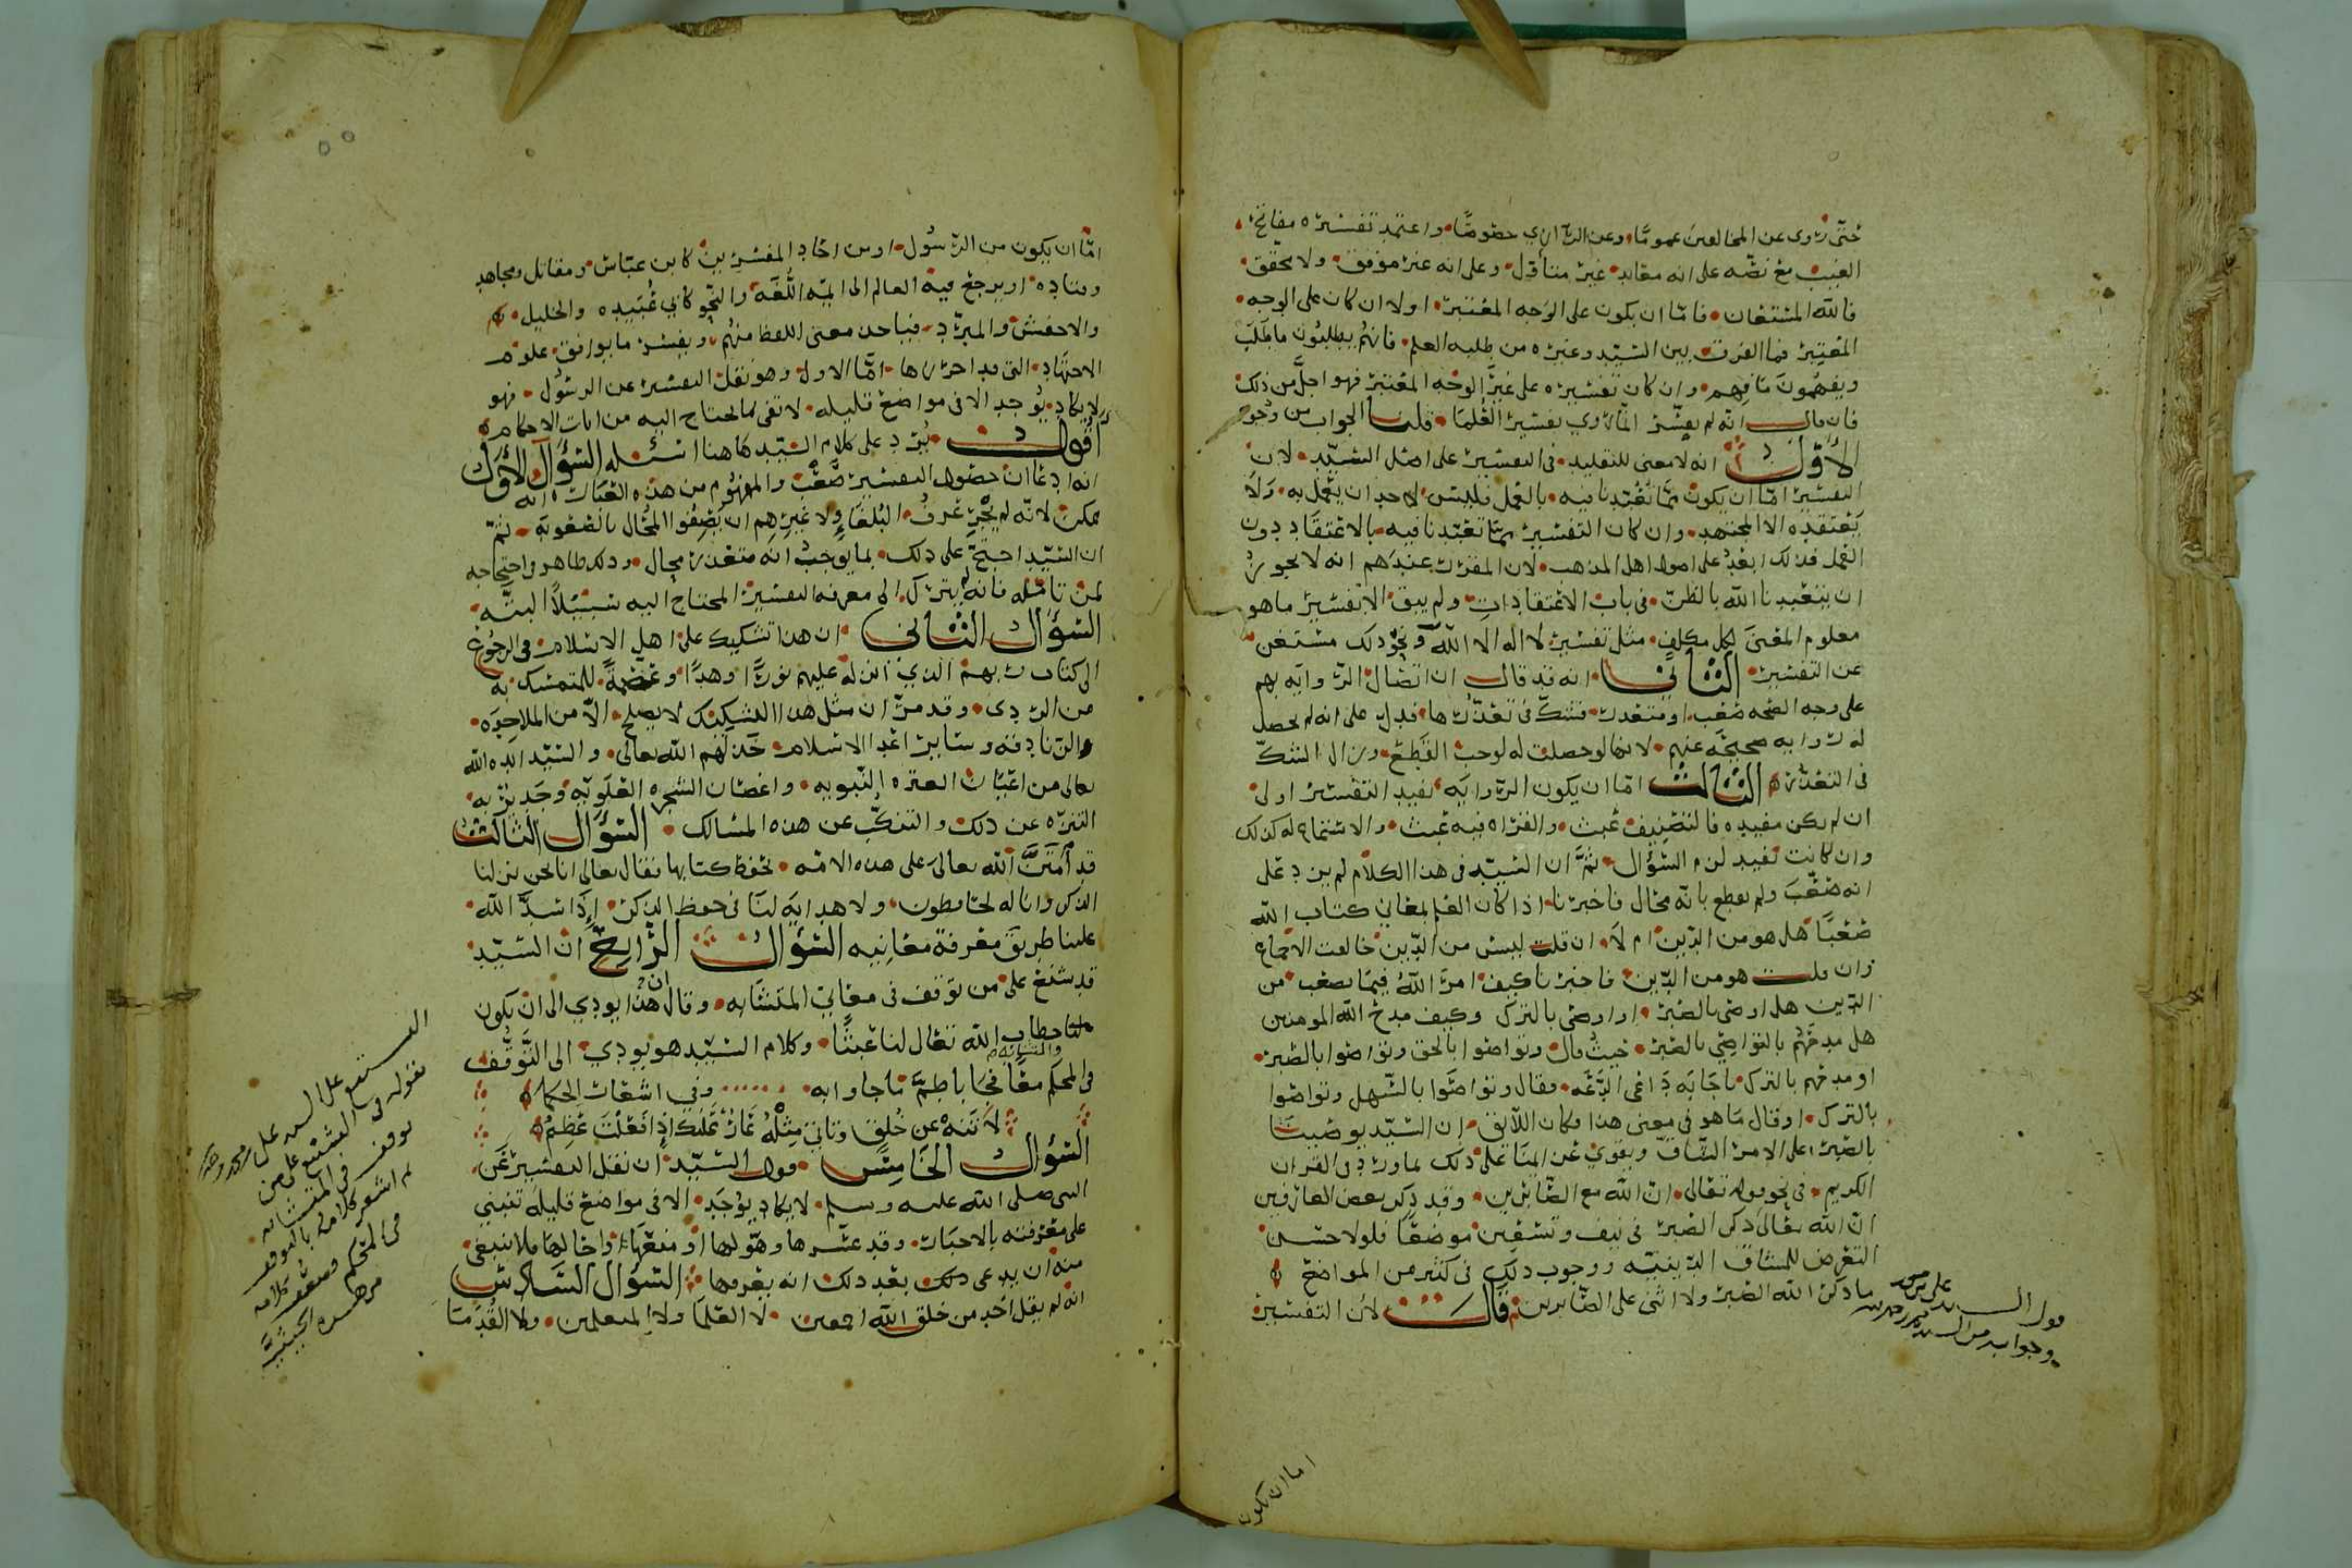 حتى روى عن المخالفين عموما وعن الرازي خصوصا واعتمد تفسيره مفاتح
الغيب مع نصه على انه مقلد غير متاول وعلى انه غير موفق ولا محقق
فالله المستعان فاما ان يكون على الوجه المعتبر اولا ان كان على الوجه
المعتبر فما الفرق بين السيد وغيره من طلبه العلم فانهم يطلبون ما طلب
ويفهمون ما فهم وان كان تفسيره على غير الوجه المعتبر فهو اجل من ذلك
فان قال انه لم يفسر انما روي تفسير العلما قلت الجواب من وجوه
الأول انه لا معنى للتقليد في التفسير على اصل السيد لان
التفسير اما ان يكون مما تعبدنا فيه بالعمل فليس لاحد ان يعمل به ولا
يعتقده الا المجتهد وان كان التفسير مما تعبدنا فيه بالاعتقاد دون
العمل فذلك ابعد على اصول اهل المذهب لان المقرر عندهم انه لا يجوز
ان يتعبدنا الله بالظن في باب الاعتقادات ولم يبق الا تفسير ما هو
معلوم المعنى لكل مكلف مثل تفسير لا اله الا الله ونحو ذلك مستغن
عن التفسير الثاني انه قد قال ان اتصال الروايه بهم
على وجه الصحه صعب او متعذر فشك في تعذرها فدل على انه لم تحصل
له روايه صحيحه عنهم لانها لو حصلت له لوجب القطع وزال الشك
في التعذر الثالث اما ان يكون الروايه تفيد التفسير اولى
ان لم يكن مفيده فالتصنيف عبث والقراه فيه عبث والاستماع له كذلك
وان كانت تفيد لزم السؤال ثم ان السيد في هذا الكلام لم يزد على
انه صعب ولم يقطع بانه محال فاخبرنا اذا كان العلم بمعاني كتاب الله
صعبا هل هو من الدين ام لا ان قلت ليس من الدين خالفت الاجماع
وان قلت هو من الدين فاخبرنا كيف امر الله فيما يصعب من
الدين هل اوصى بالصبر او اوصى بالترك وكيف مدح الله المومنين
هل مدحهم بالتواصي بالصبر حيث قال وتواصوا بالحق وتواصوا بالصبر
او مدحهم بالترك باجابه داعي الدعه فقال وتواصوا بالسهل وتواصوا
بالترك او قال ما هو في معنى هذا وكان اللائق ان السيد يوصينا
بالصبر على الامر الشاق ويقوي عزايمنا على ذلك لما ورد في القران
الكريم في نحو قوله تعالى ان الله مع الصابرين وقد ذكر بعض العارفين
ان الله تعالى ذكر الصبر في نيف وتسعين موضعا فلولا حسن
التعرض للمشاق الدينيه ووجوب ذلك في كثير من المواضع
ما ذكر الله الصبر ولا اثنى على الصابرين قال لان التفسير
اما ان يكون
اما ان يكون من الرسول او من احاد المفسرين كابن عباس ومقاتل ومجاهد
وقتاده او يرجع فيه العالم الى ايمه اللغه والنحو كابي عبيده والخليل
والاخفش والمبرد فياخذ معنى اللفظ منهم ويفسر ما يوافق علوم
الاجتهاد التي قد احرزها اما الاول وهو نقل التفسير عن الرسول فهو
لا يكاد يوجد الا في مواضع قليله لا تفي بما يحتاج اليه من ايات الاحكام
أقول يرد على كلام السيد هاهنا اسئله السؤال الأول
انه ادعا ان حصول التفسير صعب والمفهوم من هذه العبارات انه
ممكن لانه لم يجر عرف البلغا ولا غيرهم ان يصفوا المحال بالصعوبه ثم
ان السيد احتج على ذلك بما يوجب انه متعذر محال وذلك ظاهر في احتجاجه
لمن تامله فانه لم يترك الى معرفه التفسير المحتاج اليه سبيلا البته
السؤال الثاني ان هذا تشكيك على اهل الاسلام في الرجوع
الى كتاب ربهم الذي انزله عليهم نورا وهدا وعصمة للمتمسك به
من الردى وقد مر ان مثل هذا التشكيك لا يصلح الا من الملاحده
والزنادقه وسائر اعدا الاسلام خذلهم الله تعالى والسيد ايده الله
تعالى من اعيان العتره النبويه واغصان الشجره العلويه وجدير به
التنزه عن ذلك والتنكب عن هذه المسالك السؤال الثالث
قد امتن الله تعالى على هذه الامه بحفظ كتابها فقال تعالى انا نحن نزلنا
الذكر وانا له لحافظون ولا هدايه لنا في حفظ الذكر إذا سد الله
علينا طريق معرفة معانيه السؤال الرابع ان السيد
قد شنع على من توقف في معاني المتشابه وقال ان هذا يودي الى ان يكون
خطاب الله تعالى لنا عبثا وكلام السيد هو يودي الى التوقف
في المحكم والمتشابه معا فجا باطم مما جاوا به وفي اشعار الحكما
لا تنه عن خلق وتاتي مثله عار عليك إذا فعلت عظيم
السؤال الخامس قول السيد ان نقل التفسير عن
النبي صلى الله عليه وسلم لا يكاد يوجد الا في مواضع قليله تنبني
على معرفته بالاخبار وقد عسرها وهولها او منعها واحالها فلا ينبغي
منه ان يدعى ذلك بعد ذلك انه يعرفها السؤال السادس
انه لم يقل احد من خلق الله اجمعين لا العلما ولا المتعلمين ولا القدما